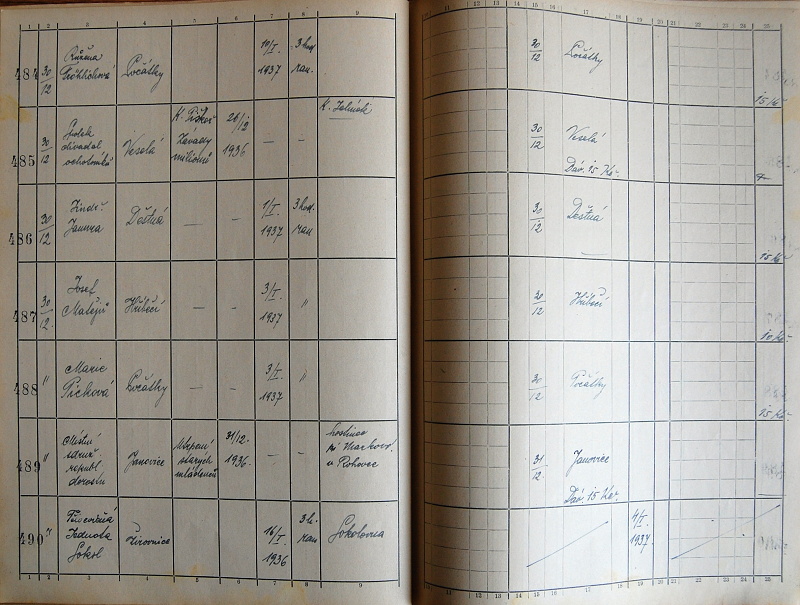 1 2 3 4 5 6 7 8 9
11 12 13 14 15 16 17 18 19 20 21 22 23 24 25
484 30/12 Růžena Počátky 19/I. 1937 3 hod. ran.
30/12 Počátky 15 Kč
485 30/12 Spolek divadel. ochotníků Veselá 26/12 1936 — —
30/12 Veselá
Dáv. 15 Kč.
486 30/12 Jindř. Deštná — — 1/I. 1937 3 hod. ran
30/12 Deštná 15 Kč
487 30/12 Josef Matějů — — 3/I. 1937 "
30/12 10 Kč
488 " Marie Počátky — — 3/I. 1937 "
30/12 Počátky 15 Kč
489 " Místní sdruž. republ. dorostu Janovice Utrpení starých mládenců 31/12. 1936. — — hostinec
31/12. Janovice
Dáv. 15 Kč.
490 " Tělocvičná Jednota Sokol Žirovnice 16/I. 1936 3 h. ran Sokolovna
4/I. 1937.
1 2 3 4 5 6 7 8 9
11 12 13 14 15 16 17 18 19 20 21 22 23 24 25